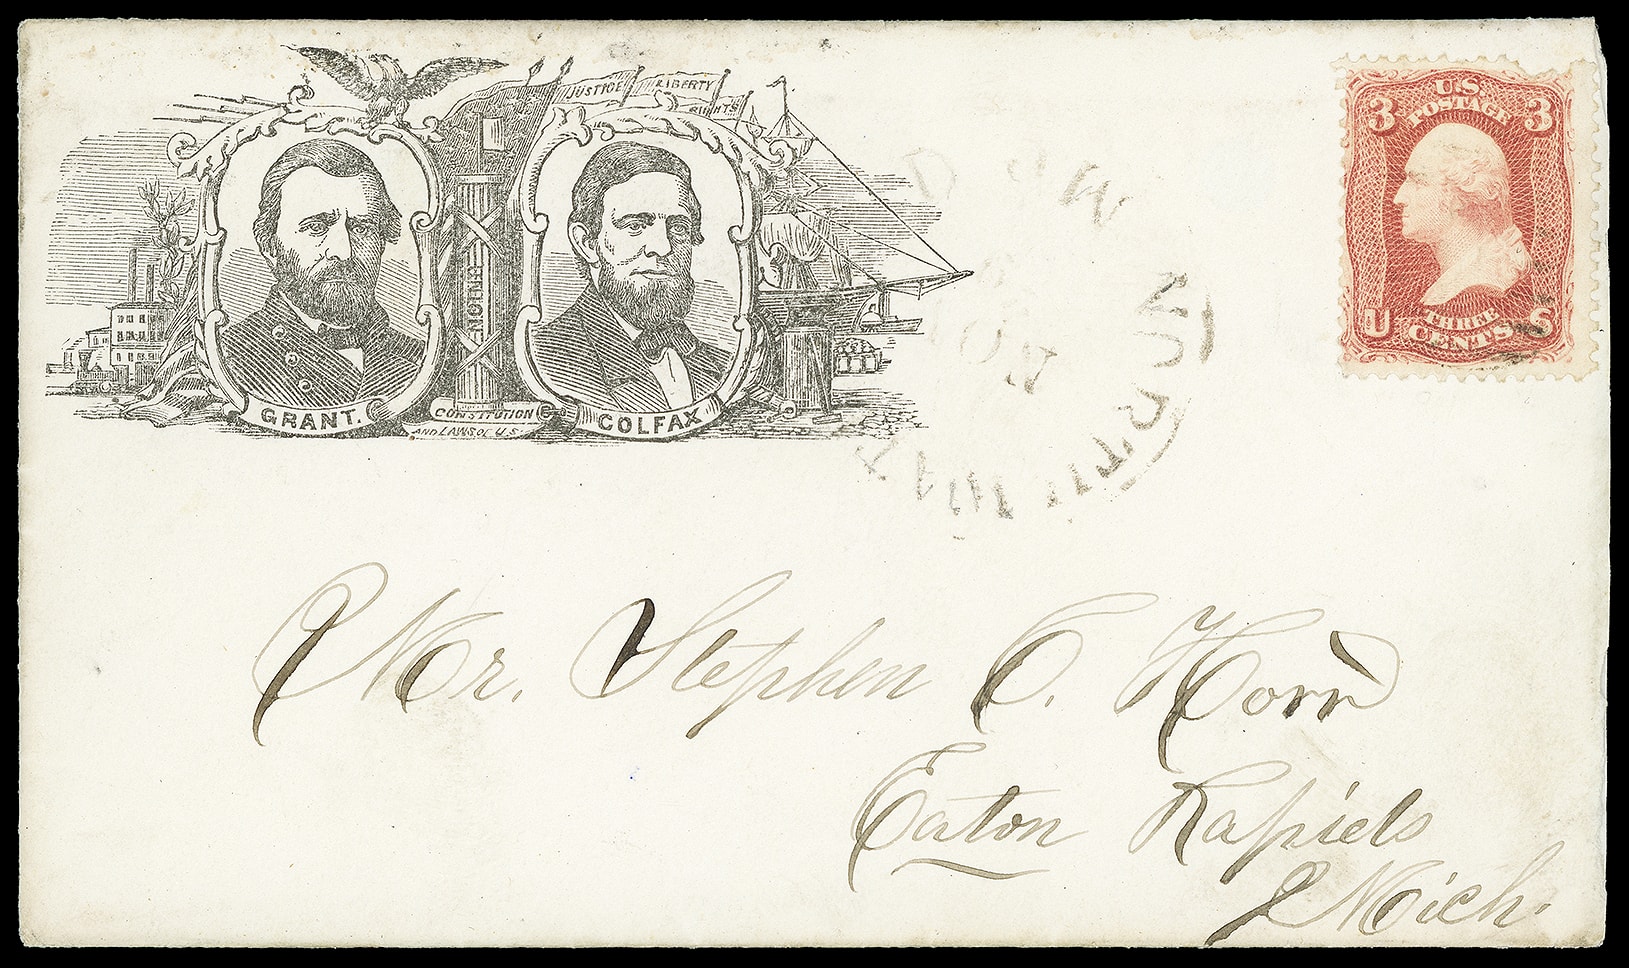 JUSTICE
LIBERTY
RIGHTS
UNION
GRANT.
CONSTITUTION
AND LAWS OF U.S.
COLFAX
3 U.S. 3
POSTAGE
U THREE S
CENTS
Mr. Stephen C. Horr
Eaton Rapids
Mich.